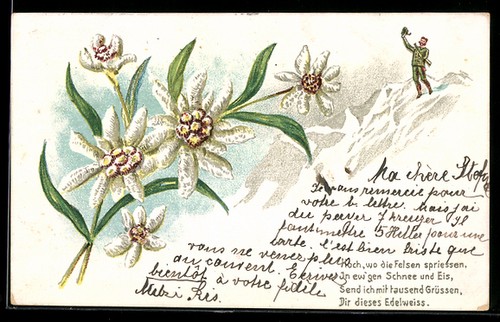 Ma chère Stefi
Je vous remercie pour
votre b. lettre. Mais j'ai
du payer 7 kreuzer. Il
faut mettre 5 Heller pour une
carte. C'est bien triste que
vous ne venez plus
au couvent. Ecrivez
bientôt à votre fidèle
Mitzi Ris.
Hoch, wo die Felsen spriessen,
In ew'gen Schnee und Eis,
Send ich mit tausend Grüssen,
Dir dieses Edelweiss.